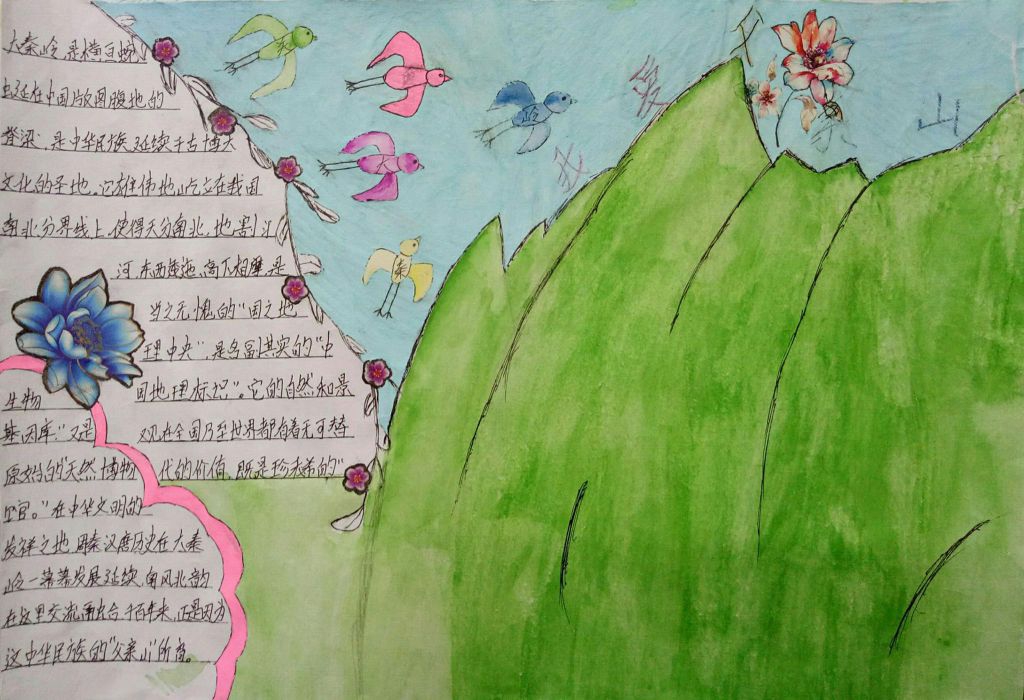 大秦岭,是横亘蜿
蜒在中国版图腹地的
脊梁,是中华民族延续千古博大
文化的圣地。它雄伟地屹立在我国
南北分界线上,使得天分南北,地割江
河,东西
高下相
是
当之无愧的"国之地
理中央",是名副其实的"中
国地理标识"。它的自然和景
观在全国乃至世界都有着无可替
代的价值,既是珍稀的"
生物
基因库",又是
原始的"天然博物
宫。"在中华文明的
发祥之地,周秦汉唐历史在大秦
岭一带
发展延续,南风北韵
在这里交流
千百年来,正是因为
这中华民族的"父亲山"所在。
岭
秦
我
爱
父
亲
山